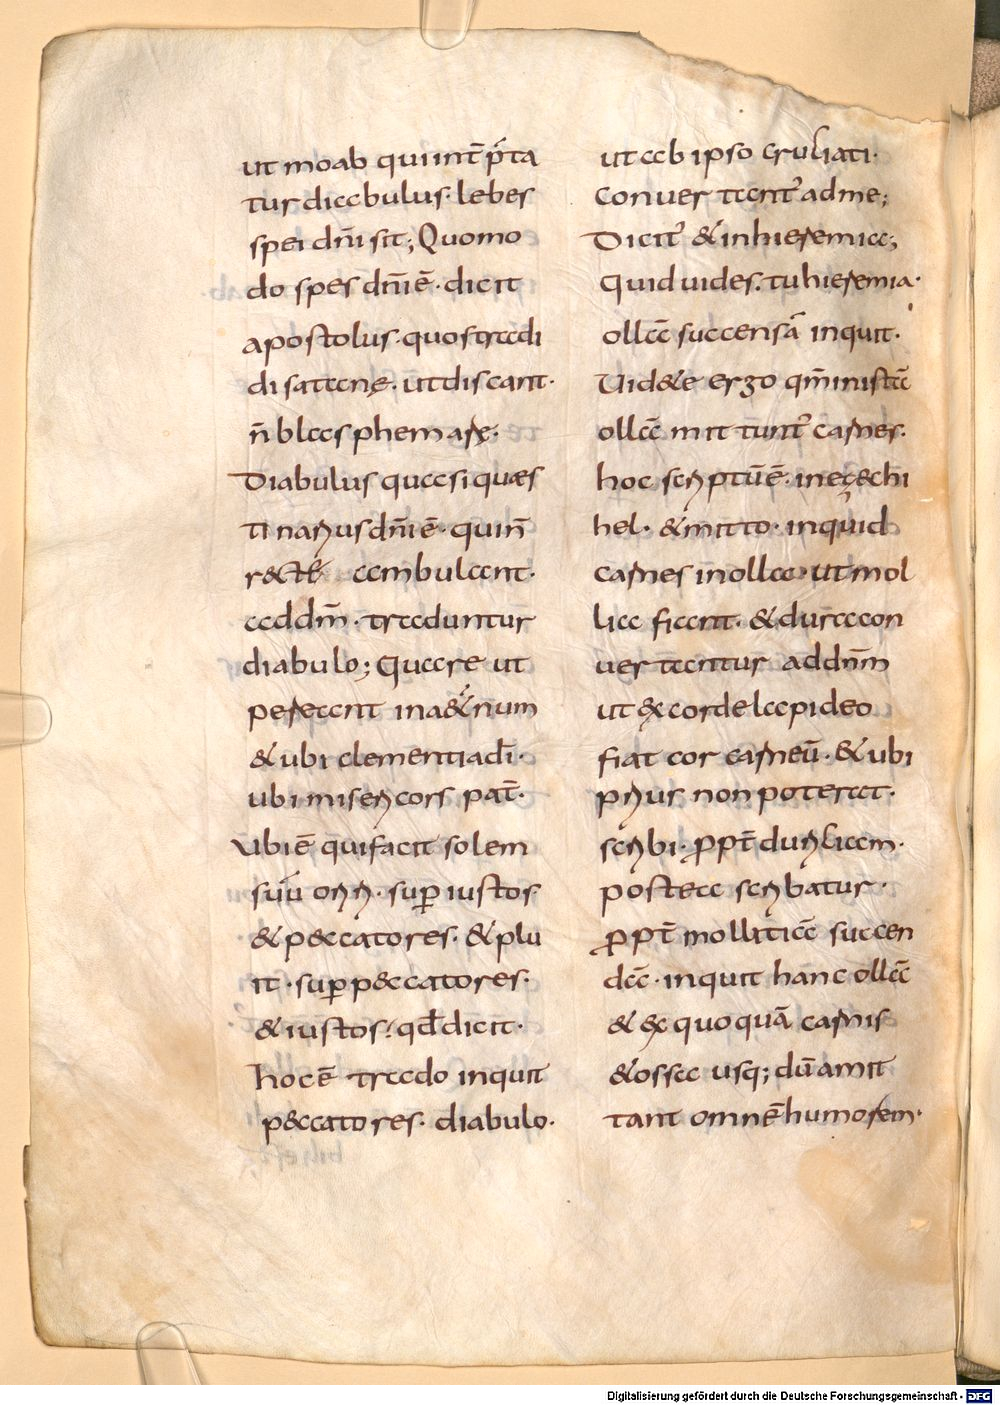 ut moab qui int̄ p̄ta
tur diabulus· lebes
spei dn̄i sit; Quomo
do spes dn̄i ē· dicit
apostolus· quos tradi
di satanę· ut discant·
n̄ blasphemare·
Diabulus quasi quæs
tinarius dn̄i ē· qui n̄
recte ambulant·
ad dm̄· traduntur
diabulo; Quare ut
pereant in aet̄num
& ubi clementia dī·
ubi misericors pat̄·
Ubi ē qui facit solem
suū oriri· sup iustos
& peccatores· & plu
it· sup peccatores·
& iustos· qđ dicit·
hoc ē trado inquit
peccatores· diabulo·
ut ab ipso cruciati·
convertant᷒ ad me;
Dicit᷒ & in hieremia;
Quid uides· tu hieremia·
ollā succensā inquit·
Uidete ergo qm̄ in istā
ollā mittunt᷒ carnes·
hoc scriptū ē· in ezechi
hel· & mitto· inquid
carnes in olla· ut mol
lia fiant· & dura con
uertantur ad dnm̄
ut ex corde lapideo
fiat cor carneū· & ubi
prius non poterat·
scribi· ꝓpt̄ duriciam·
postea scribatur·
ꝓpt̄ mollitiā succen
dā· inquit hanc ollā
& ex quo quā carnis
& ossa usq; dū amit
tant omnē humorem·
Digitalisierung gefördert durch die Deutsche Forschungsgemeinschaft - DFG